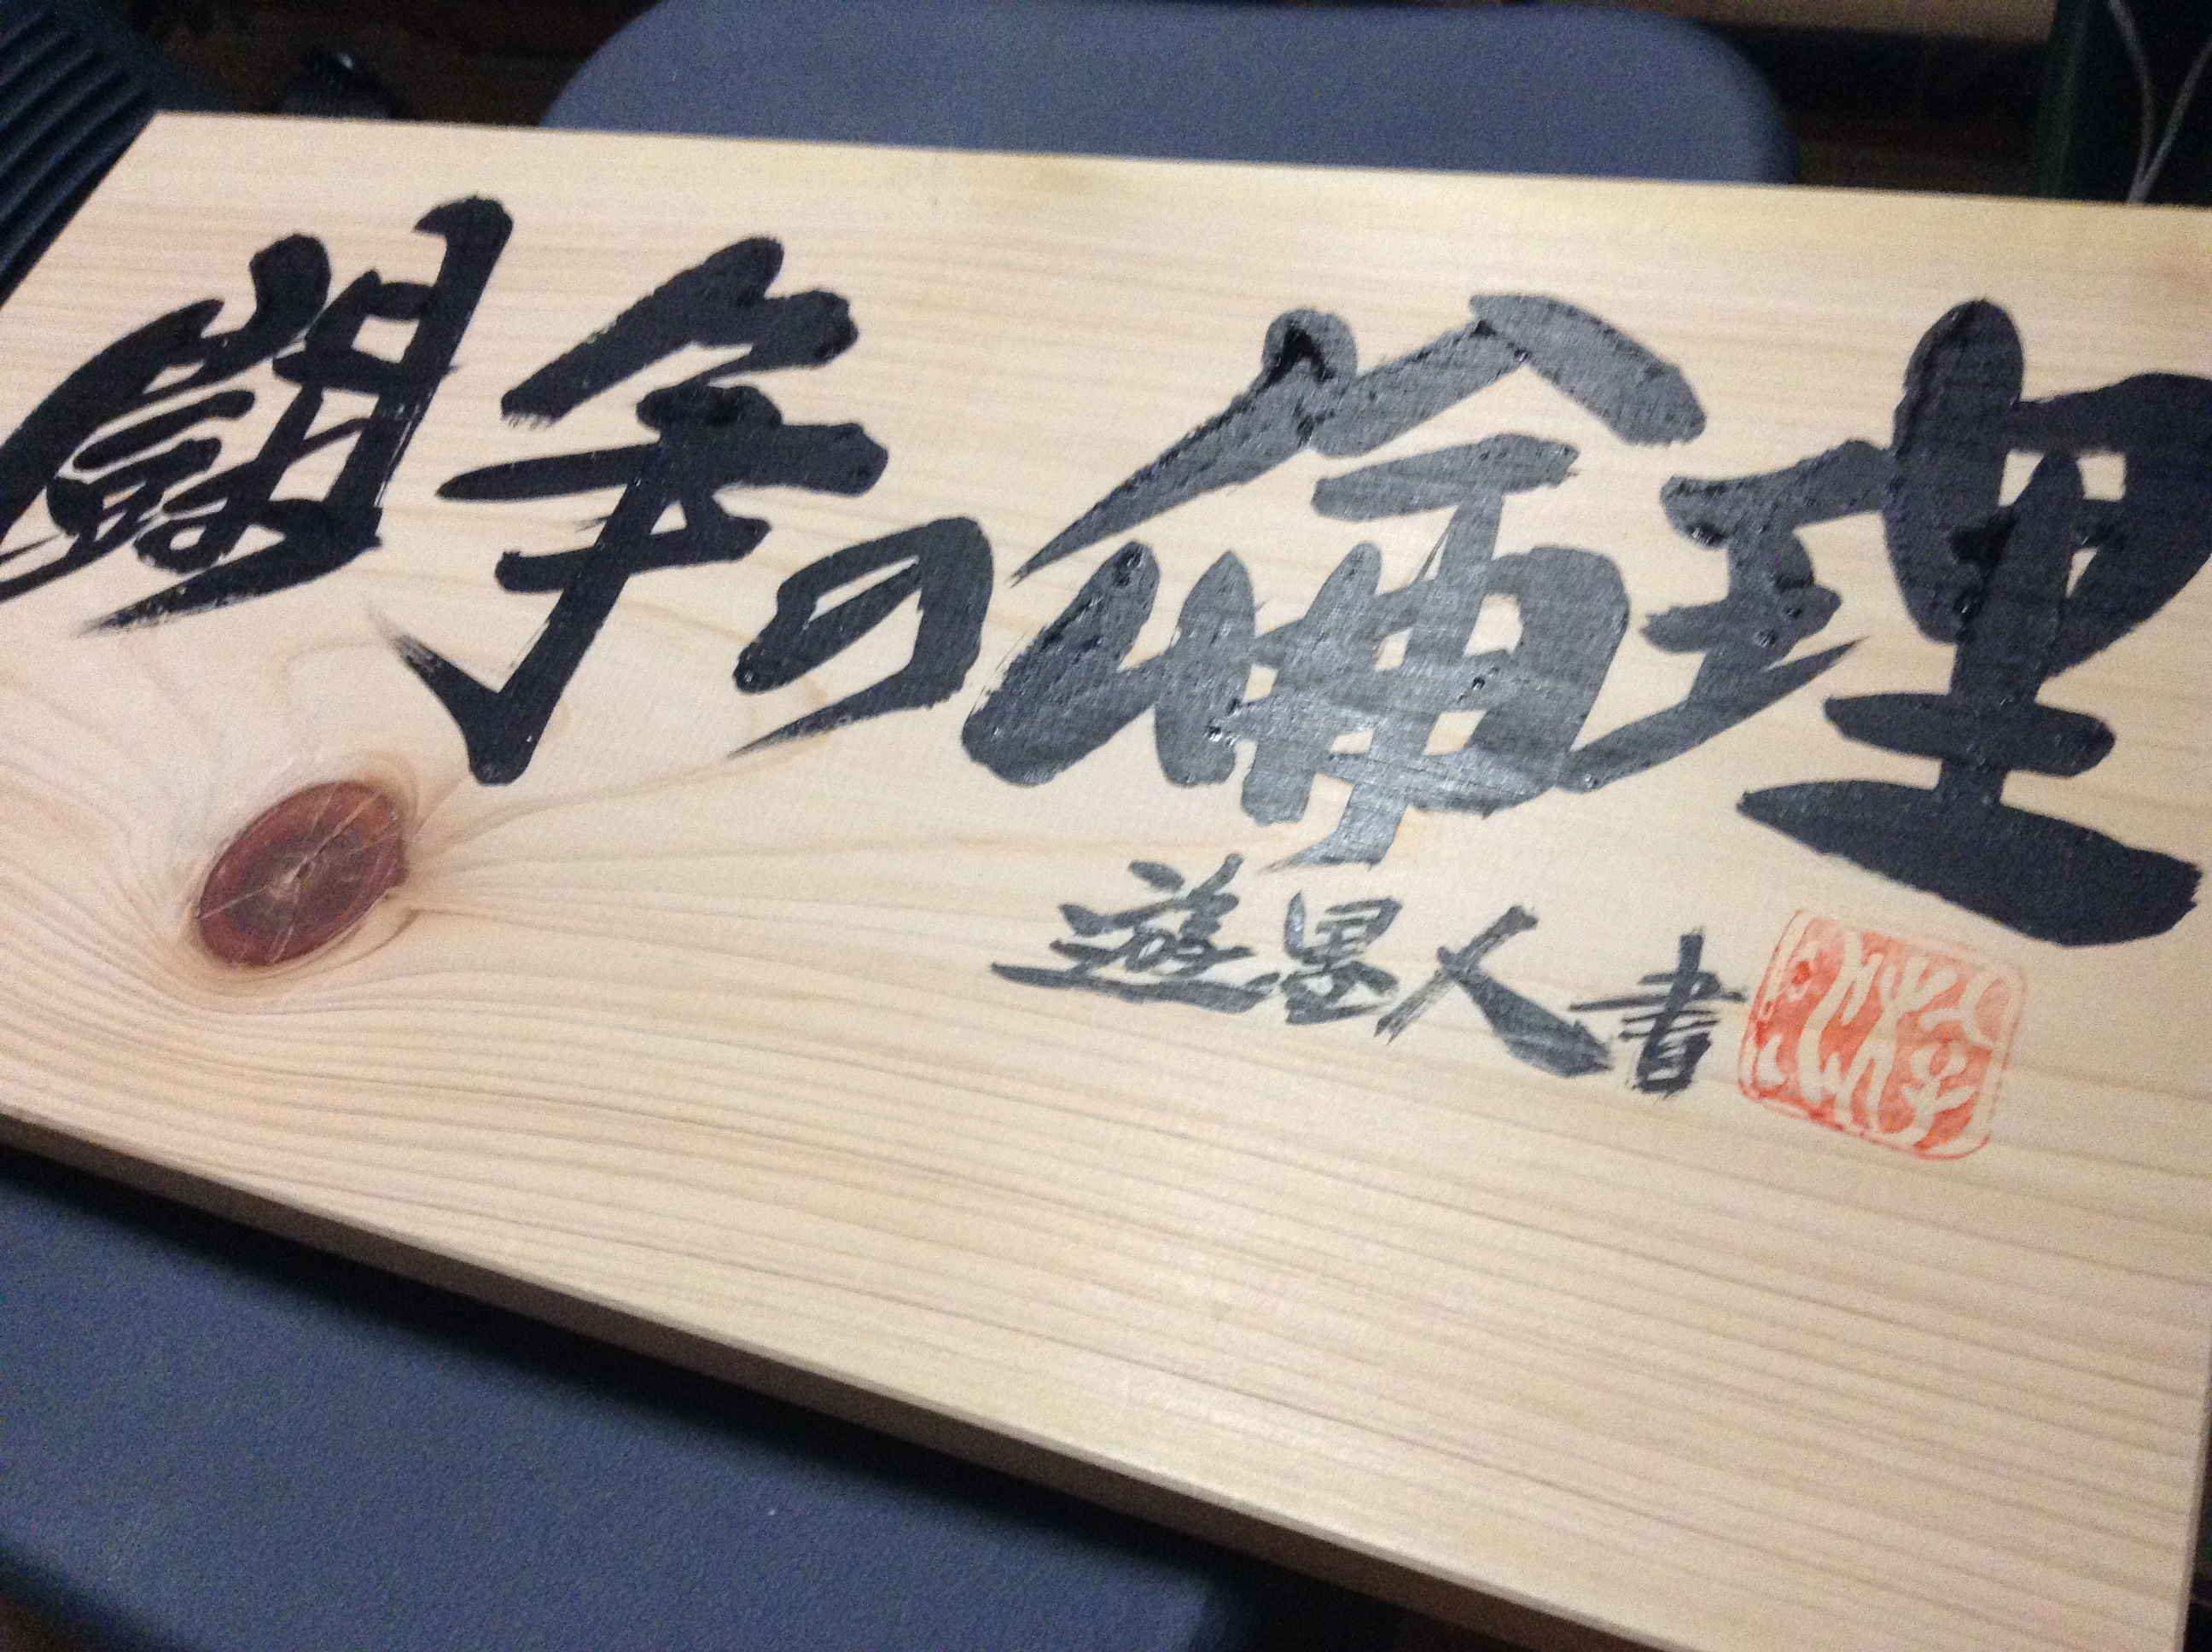 闘争の倫理
遊墨人書